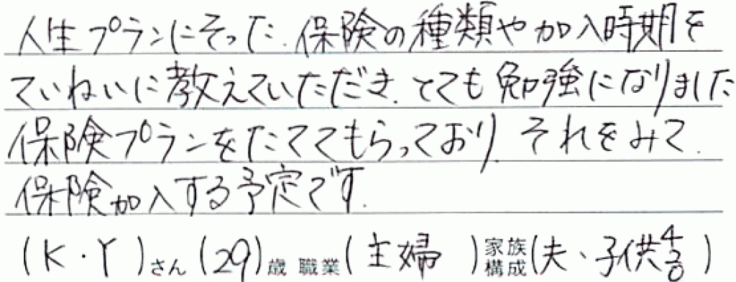 人生プランにそった、保険の種類や加入時期を
ていねいに教えていただき、とても勉強になりました
保険プランをたててもらっており、それをみて、
保険加入する予定です。
(K・Y)さん(29)歳 職業(主婦)家族構成(夫、子供4,0)